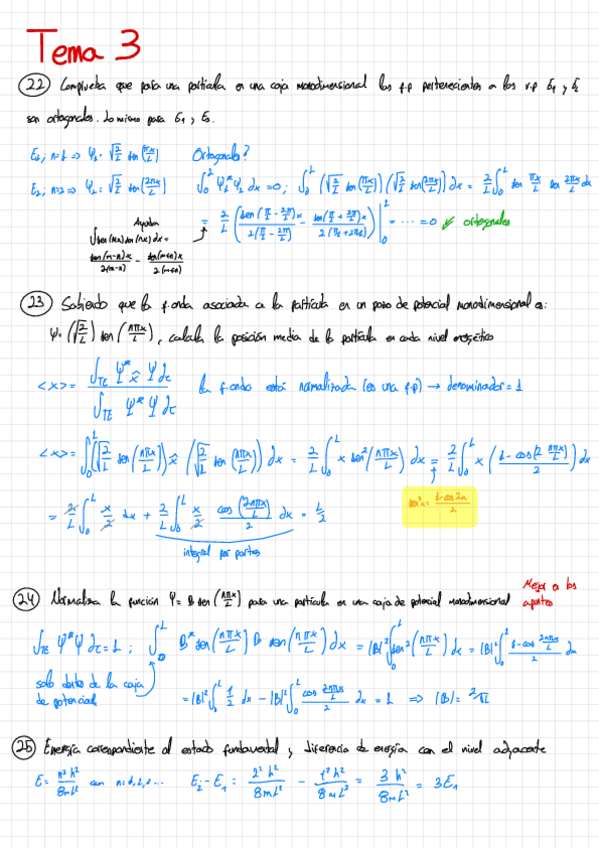 Tema 3
22 Comprueba que para una partícula en una caja monodimensional las f.p pertenecientes a los v.p E₁ y E₂
son ortogonales. Lo mismo para E₁ y E₃.
E₁; n=1 => Ψ₁ = √(2/L) sen(πx/L) Ortogonales?
E₂; n=2 => Ψ₂ = √(2/L) sen(2πx/L) ∫ Ψ₁* Ψ₂ dx = 0; ∫₀ᴸ (√(2/L) sen(πx/L)) (√(2/L) sen(2πx/L)) dx = 2/L ∫₀ᴸ sen πx/L sen 2πx/L dx
Ayuda
∫ sen(mx) sen(nx) dx =
sen(m-n)x / 2(m-n) - sen(m+n)x / 2(m+n)
= 2/L ( sen(π/L - 2π/L)x / 2(π/L - 2π/L) - sen(π/L + 2π/L)x / 2(π/L + 2π/L) ) |₀ᴸ = ... = 0 ✓ ortogonales
23 Sabiendo que la f.onda asociada a la partícula en un pozo de potencial monodimensional es:
Ψ = (√(2/L)) sen(nπx/L), calcula la posición media de la partícula en cada nivel energético
<x> = ∫TE Ψ* x̂ Ψ dτ / ∫TE Ψ* Ψ dτ la f.onda está normalizada (es una f.p) → denominador = 1
<x> = ∫₀ᴸ (√(2/L) sen(nπx/L)) x̂ (√(2/L) sen(nπx/L)) dx = 2/L ∫₀ᴸ x sen²(nπx/L) dx = 2/L ∫₀ᴸ x (1-cos(2 nπx/L) / 2) dx
sen²x = 1-cos 2x / 2
= 2/L ∫₀ᴸ x/2 dx + 2/L ∫₀ᴸ x/2 cos(2nπx/L) / 2 dx = L/2
integral por partes
24 Normaliza la función Ψ = B sen(nπx/L) para una partícula en una caja de potencial monodimensional
Mejor a los
apuntes
∫TE Ψ* Ψ dτ = 1 ; ∫₀ᴸ B* sen(nπx/L) B sen(nπx/L) dx = |B|² ∫₀ᴸ sen²(nπx/L) dx = |B|² ∫₀ᴸ 1-cos 2nπx/L / 2 dx
solo dentro de la caja
de potencial
= |B|² ∫₀ᴸ 1/2 dx - |B|² ∫₀ᴸ cos 2nπx/L / 2 dx = 1 => |B| = ²√L
25 Energía correspondiente al estado fundamental y diferencia de energía con el nivel adyacente
E = n² h² / 8mL² con n=1,2,... E₂ - E₁ = 2² h² / 8mL² - 1² h² / 8mL² = 3 h² / 8mL² = 3E₁